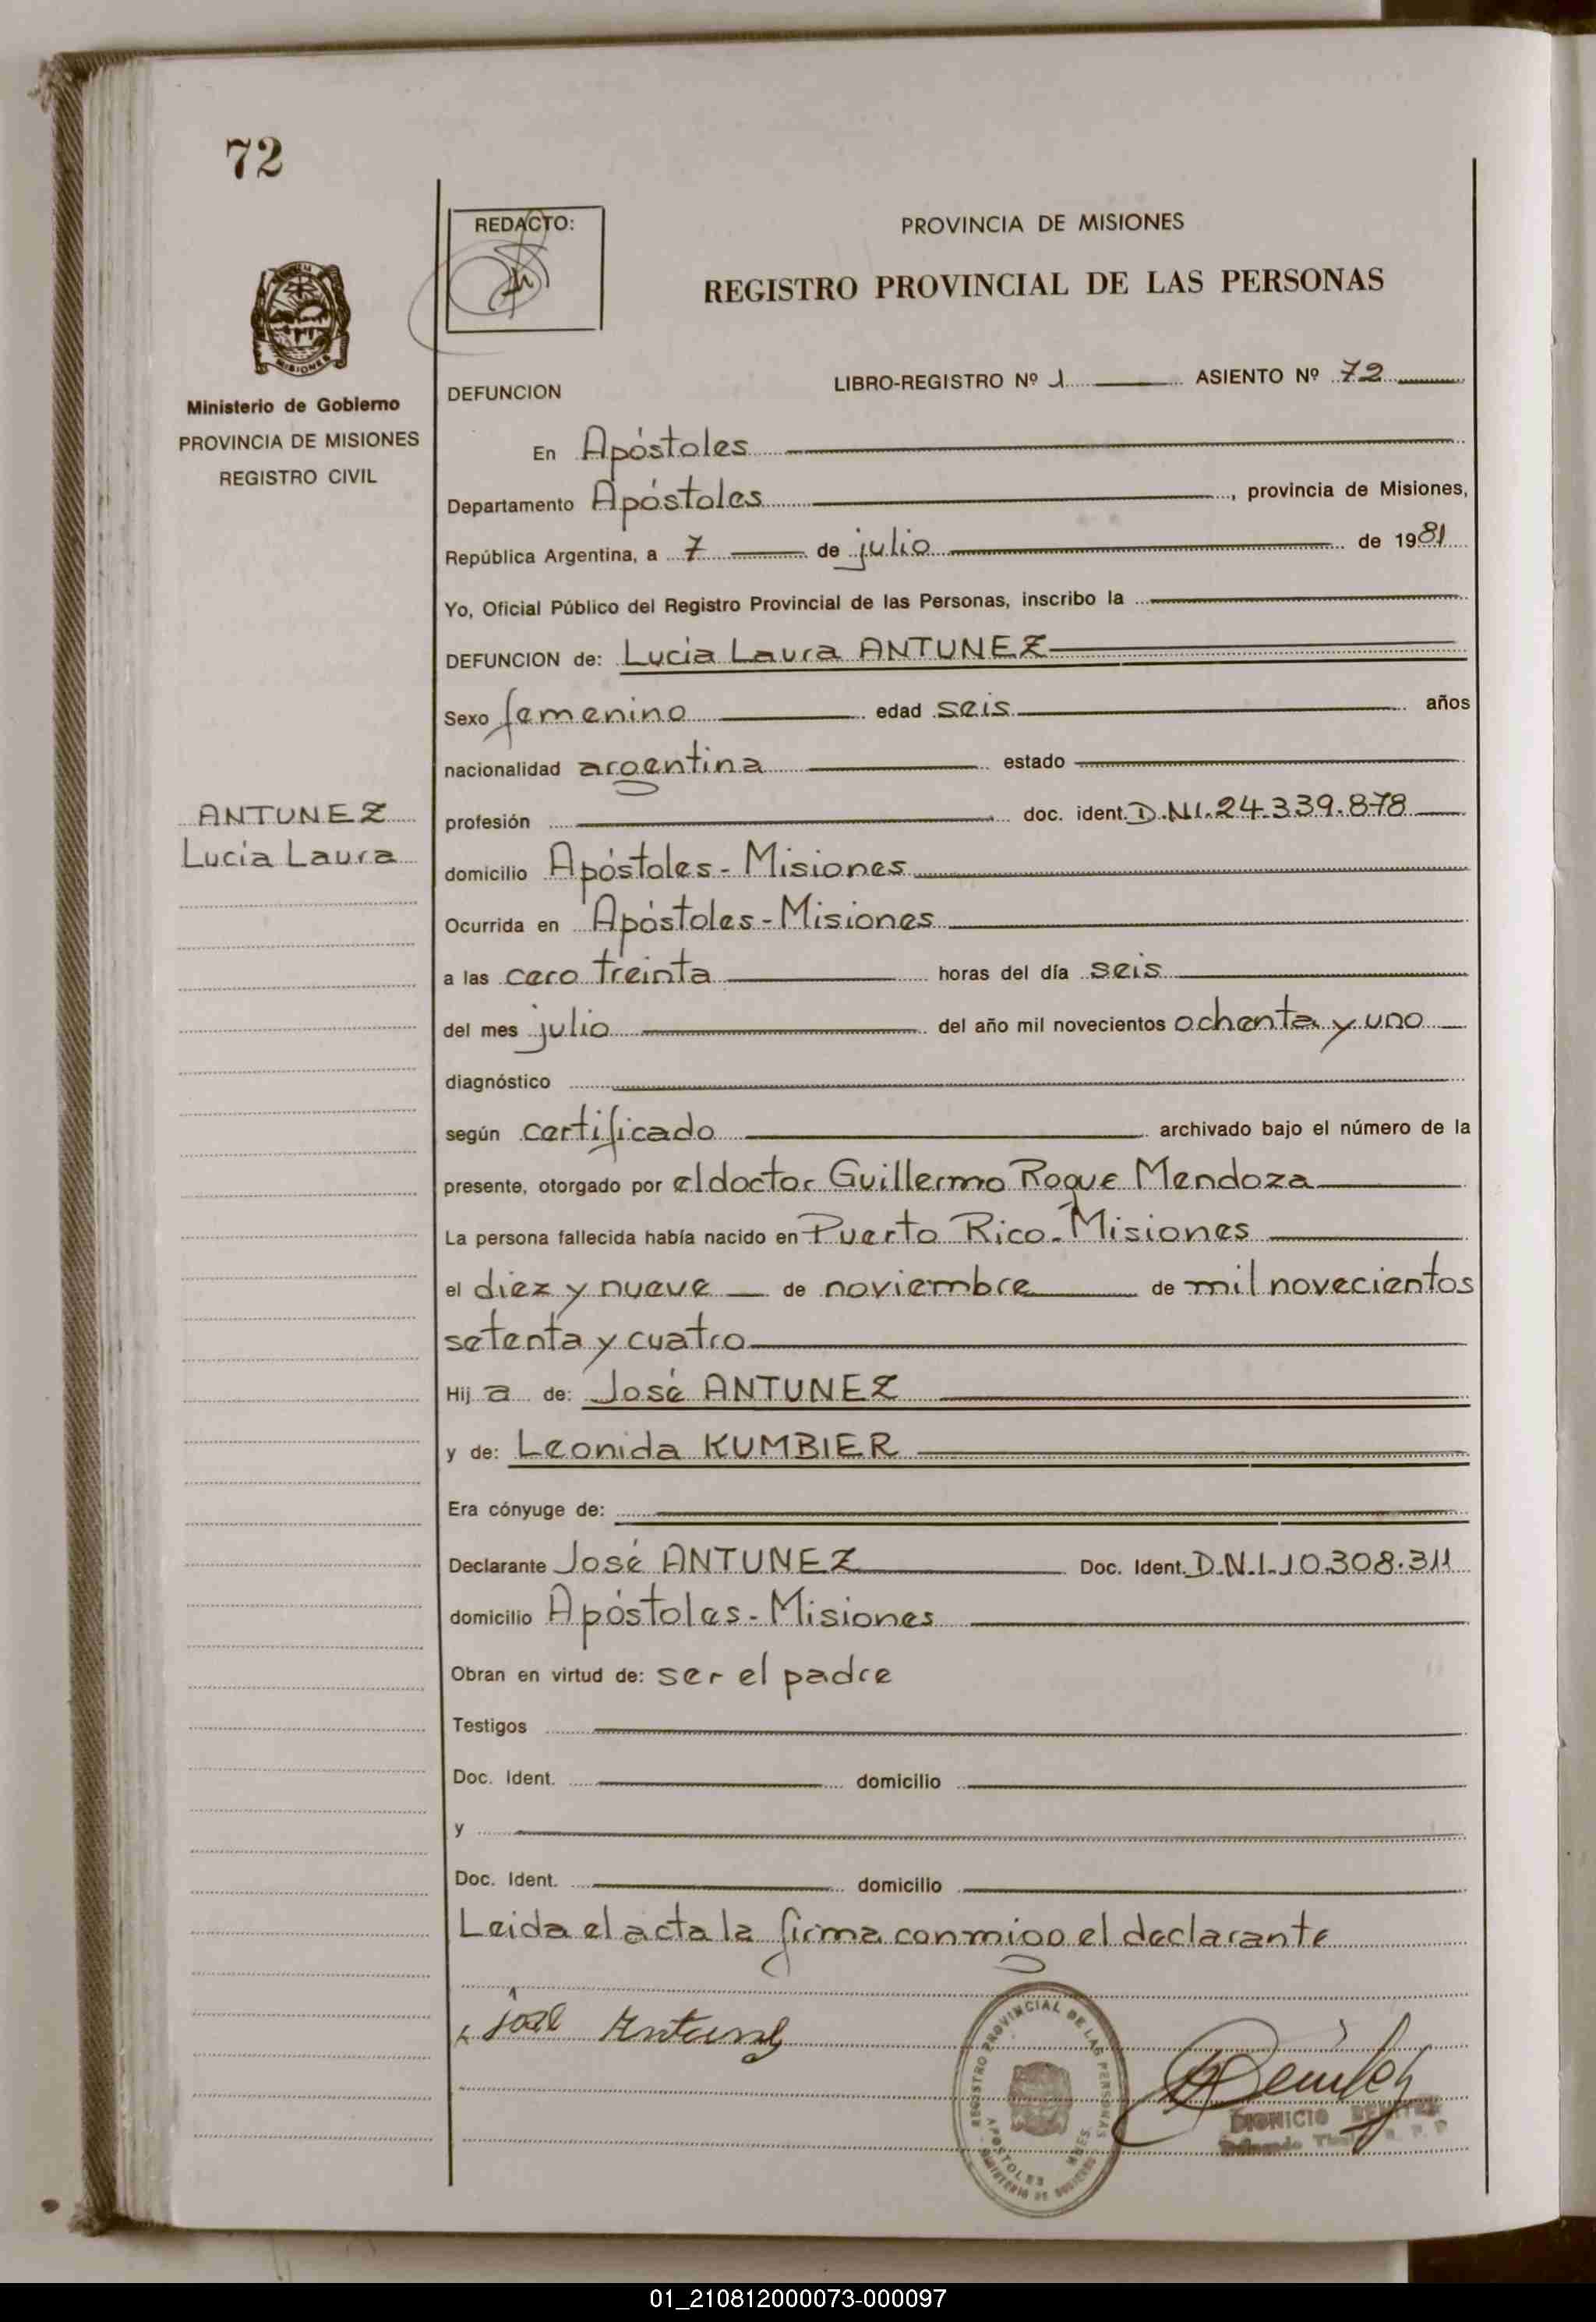 72
REDACTO:
PROVINCIA DE MISIONES
REGISTRO PROVINCIAL DE LAS PERSONAS
MISIONES
Ministerio de Gobierno
PROVINCIA DE MISIONES
REGISTRO CIVIL
DEFUNCION LIBRO-REGISTRO Nº 1 ASIENTO Nº 72
En Apóstoles
Departamento Apóstoles, provincia de Misiones,
República Argentina, a 7 de julio de 1981
Yo, Oficial Público del Registro Provincial de las Personas, inscribo la
DEFUNCION de: Lucia Laura ANTUNEZ
Sexo femenino edad seis años
nacionalidad argentina estado
ANTUNEZ
Lucia Laura
profesión doc. ident. D.N.I. 24.339.878
domicilio Apóstoles - Misiones
Ocurrida en Apóstoles - Misiones
a las cero treinta horas del día seis
del mes julio del año mil novecientos ochenta y uno
diagnóstico
según certificado archivado bajo el número de la
presente, otorgado por el doctor Guillermo Roque Mendoza
La persona fallecida había nacido en Puerto Rico - Misiones
el diez y nueve de noviembre de mil novecientos
setenta y cuatro
Hij a de: José ANTUNEZ
y de: Leonida KUMBIER
Era cónyuge de:
Declarante José ANTUNEZ Doc. Ident. D.N.I. 10.308.311
domicilio Apóstoles - Misiones
Obran en virtud de: ser el padre
Testigos
Doc. Ident. domicilio
y
Doc. Ident. domicilio
Leida el acta la firma conmigo el declarante
REGISTRO PROVINCIAL DE LAS PERSONAS
APOSTOLES MNES.
MINISTERIO DE GOBIERNO
DIONICIO BENITEZ
01_210812000073-000097